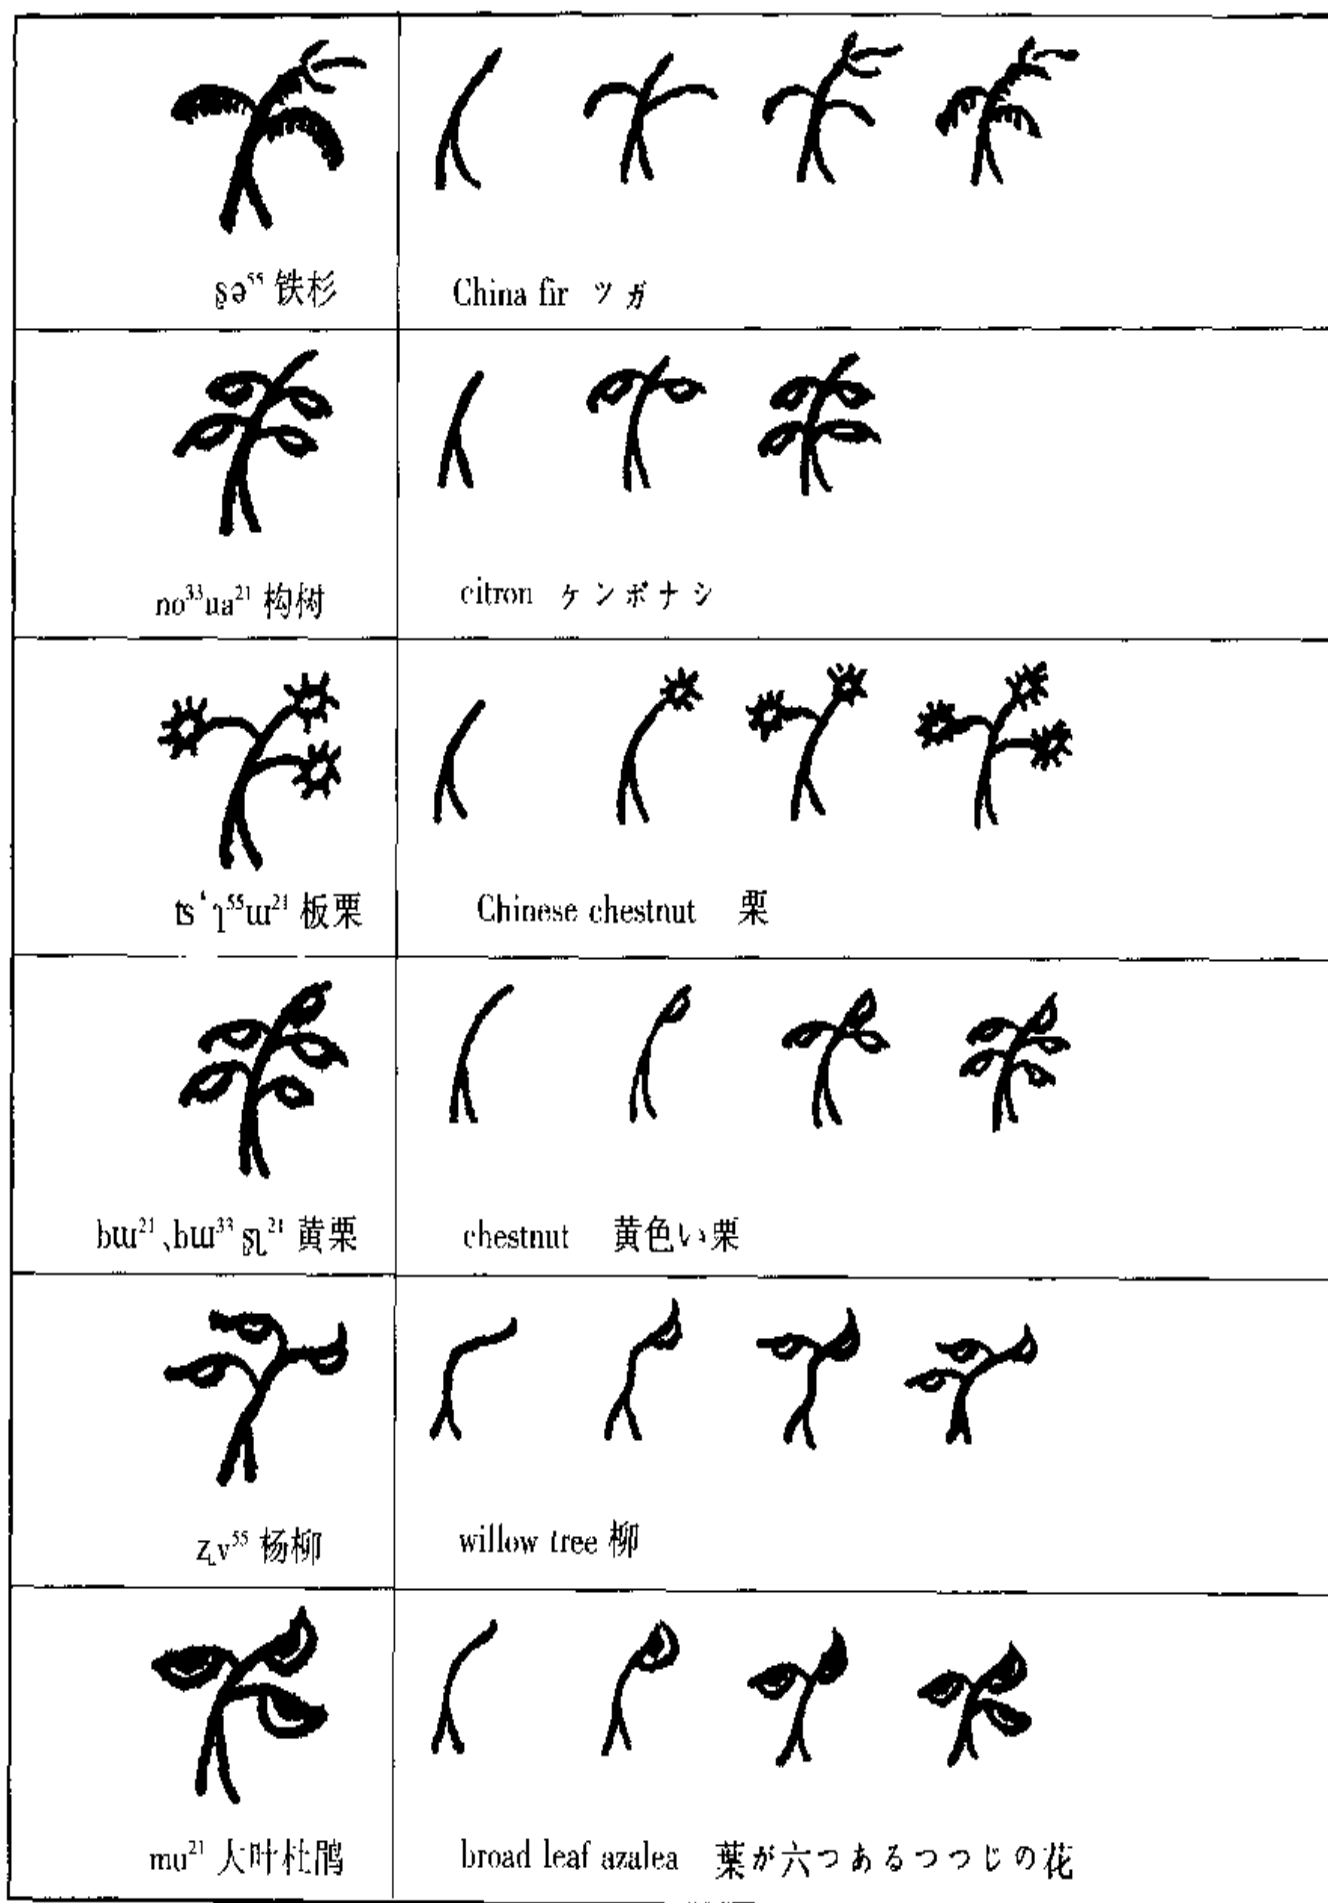 ʂə⁵⁵ 铁杉
China fir ツガ
no³³ua²¹ 构树
citron ケンポナシ
ts‘ɿ⁵⁵ɯ²¹ 板栗
Chinese chestnut 栗
bɯ²¹、bɯ³³ʂʅ²¹ 黄栗
chestnut 黄色い栗
ʐv⁵⁵ 杨柳
willow tree 柳
mu²¹ 大叶杜鹃
broad leaf azalea 葉が六つあるつつじの花